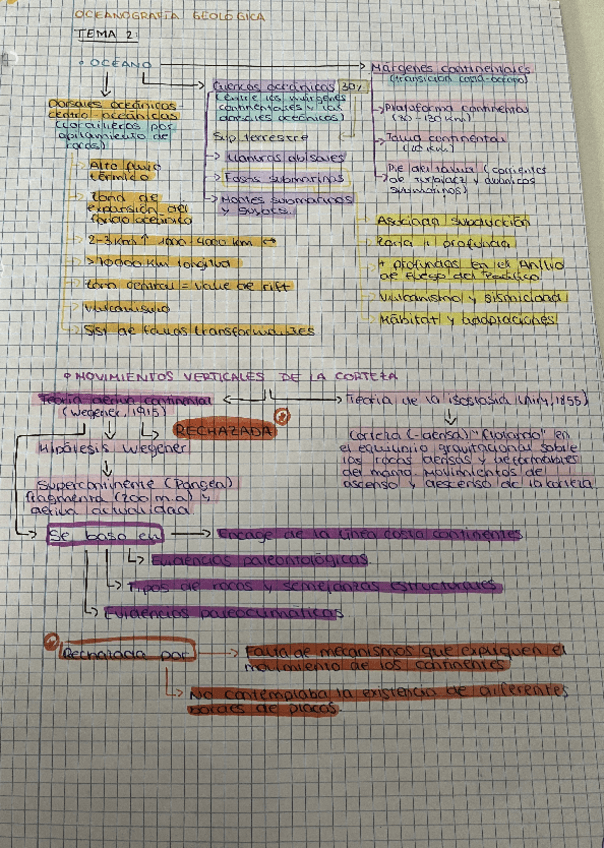 OCEANOGRAFÍA GEOLÓGICA
TEMA 2:
OCÉANO
Dorsales oceánicas
centro-oceánicas
(cordilleras por
apilamiento de
rocas)
Alto flujo
térmico
Zona de
expansión del
fondo oceánico
2-3 Km ↑ 1000-4000 km ↔
>70000 Km longitud
Zona central = valle de rift
Vulcanismo
Sist de fallas transformantes
Cuencas oceánicas 30%
(entre los márgenes
continentales y los
dorsales oceánicos)
Sup terrestre
Llanuras abisales
Fosas submarinas
Montes submarinos
y guyots..
Márgenes continentales
(transición cont-océano)
Plataforma continental
Talud continental
Pie del talud (corrientes
de turbidez y abanicos
submarinos)
Asociada subducción
+ profundas en el Anillo
de Fuego del Pacífico
Vulcanismo y sismicidad
Hábitat y adaptaciones
MOVIMIENTOS VERTICALES DE LA CORTEZA
Teoría deriva continental
(Wegener, 1915)
RECHAZADA
Hipótesis Wegener
Supercontinente (Pangea)
fragmenta (200 m.a) y
deriva actualidad
Teoría de la isostasia (Airy, 1855)
Corteza (-densa) "flotando" en
el equilibrio gravitacional sobre
las rocas densas y deformables
del manto movimientos de
ascenso y descenso de la corteza
Se basa en
Encage de la línea costa continentes
Evidencias paleontológicas
Tipos de rocas y semejanzas estructurales
Evidencias paleoclimáticas
Rechazada por
Falta de mecanismos que expliquen el
movimiento de los continentes
No contemplaba la existencia de diferentes
bordes de placas.